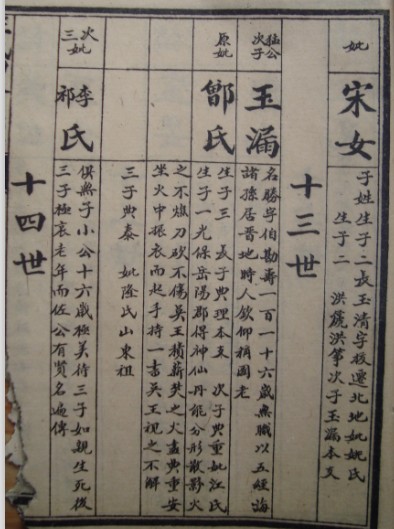 妣
宋女
子姓生子二長玉清字援遷北地妣姚氏
生子二 洪 洪筆次子玉漏本支
十三世
猛公
次子
玉漏
名勝字伯勘壽一百一十六歲無職以五經誨
諸孫居晉地時人欽仰稱國老
原妣
鄧氏
生子三 長子典理本支 次子典重妣江氏
生子一光保岳陽郡得神仙丹能分形散影火
之不燥刀砍不傷吳王積薪焚之火盡典重安
坐火中振衣而起手持一書吳王視之不解
三子典泰 妣隆氏山東祖
次妣
三妣
李氏
祁
俱無子小公十六歲極美待三子如親生死後
三子極哀老年而佐公有賢名遍傳
十四世